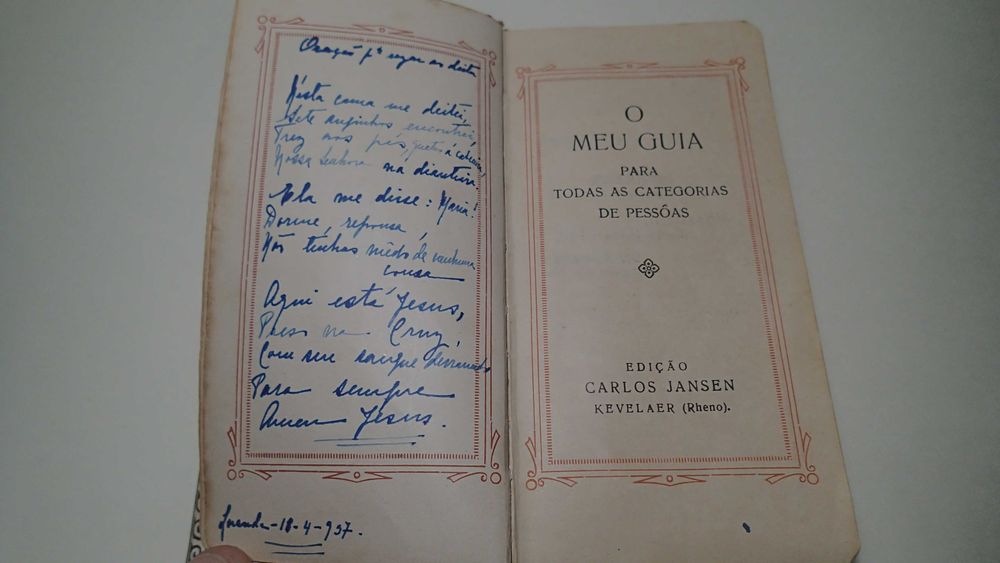 Oração pª rezar ao deitar
Nésta cama me deitei,
Sete anginhos encontrei,
Trez aos pés, quatro á cabeceira,
Nossa Senhora na dianteira.
Ela me disse: Maria!
Dorme, repousa,
Não tenhas mêdo de nenhuma
cousa
Aqui está Jesus,
Preso na Cruz,
Com seu sangue derramado
Para sempre
Amen Jesus.
18-4-937.
O
MEU GUIA
PARA
TODAS AS CATEGORIAS
DE PESSÔAS
EDIÇÃO
CARLOS JANSEN
KEVELAER (Rheno).